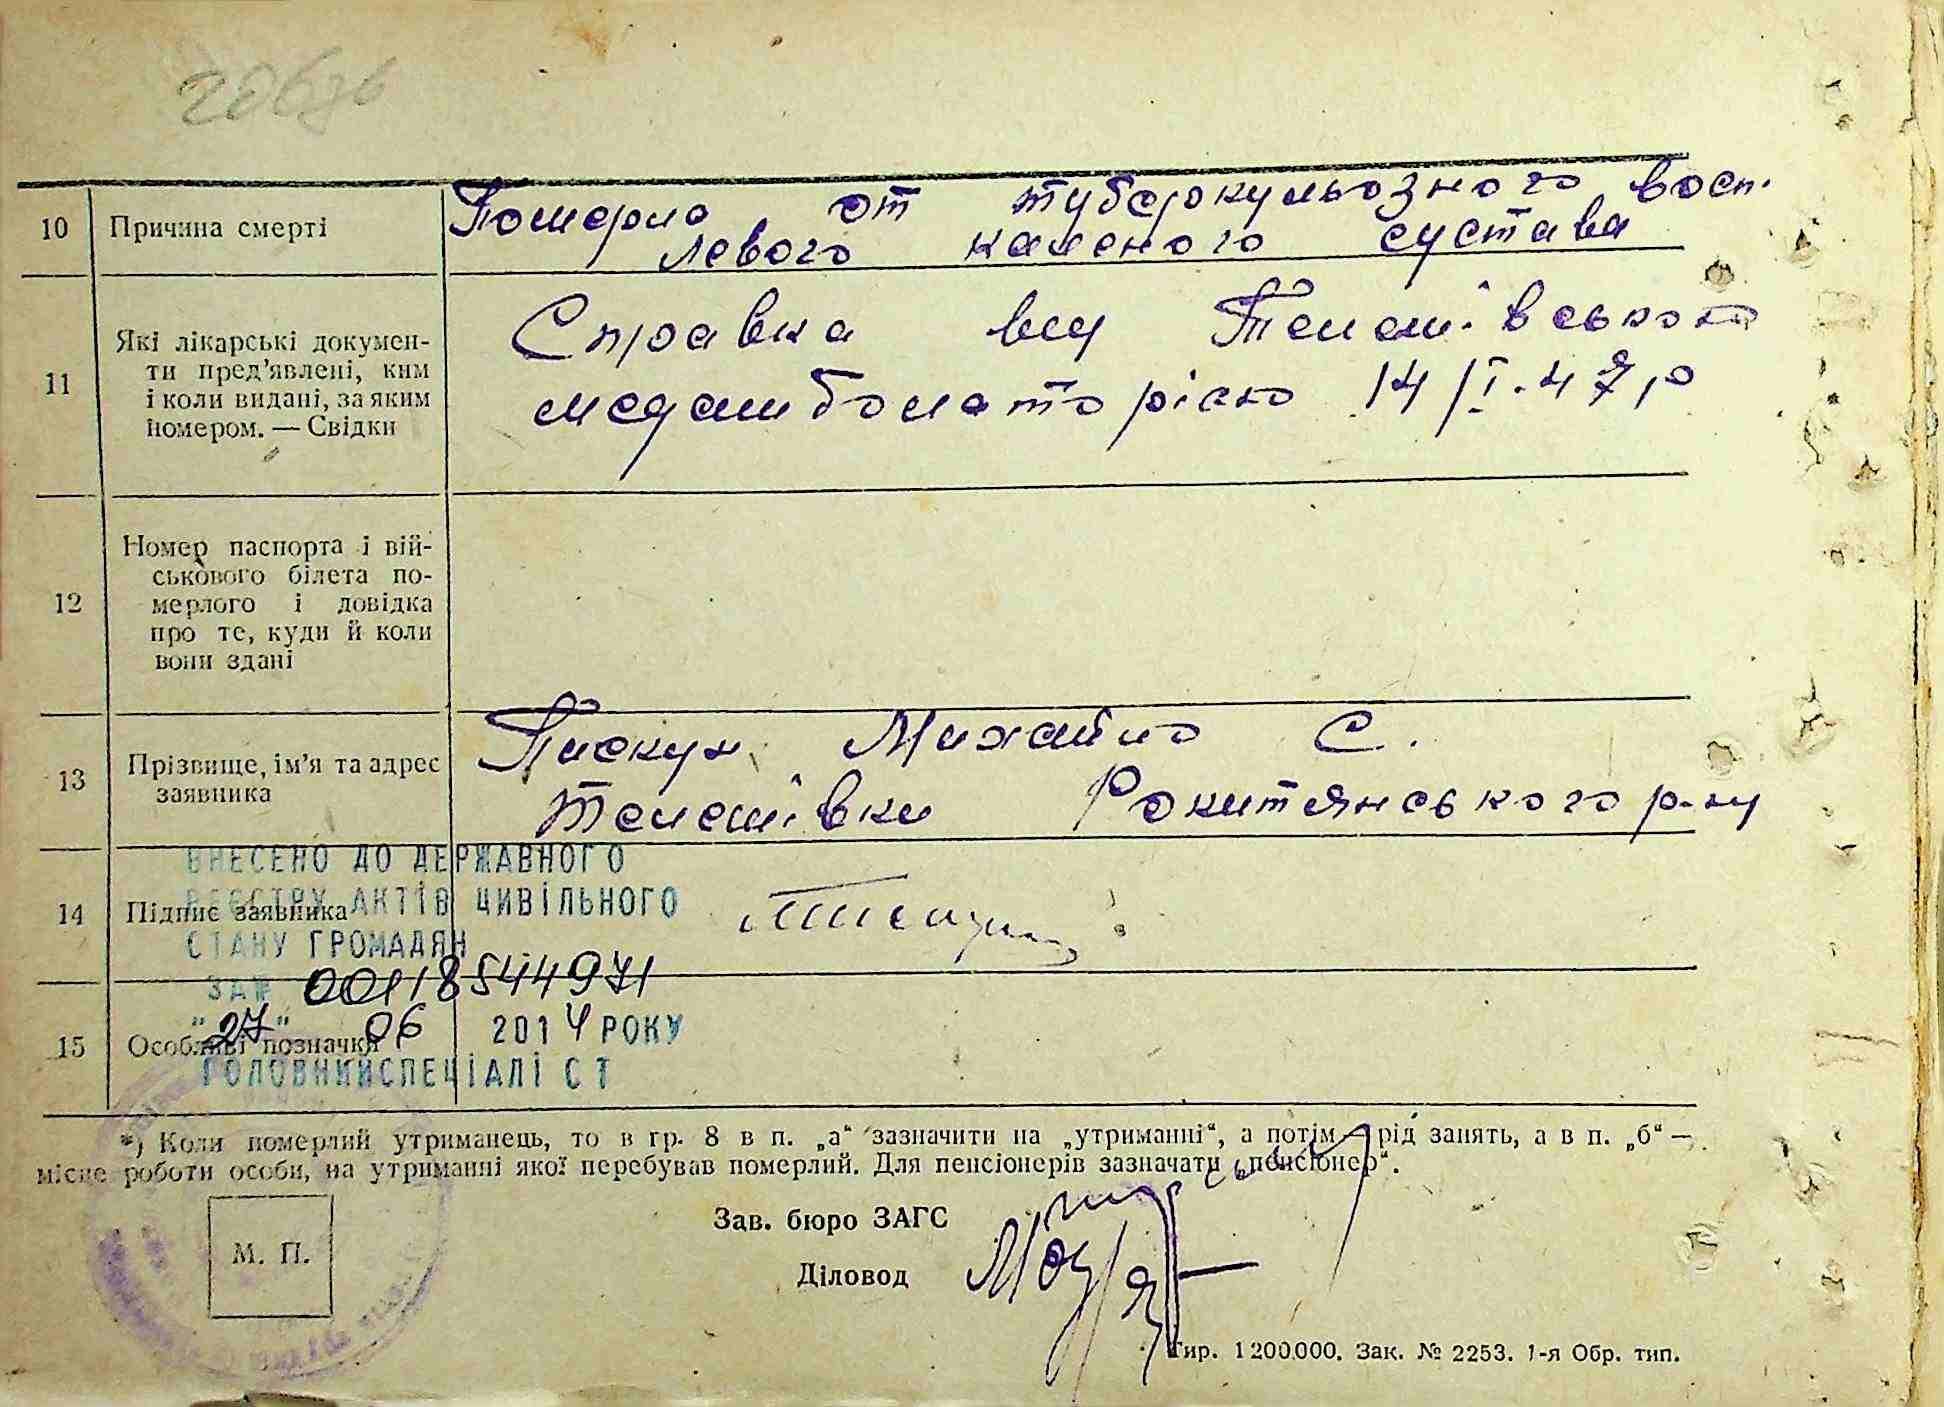 10 Причина смерти
Померла от туберкульозного восп.
левого каленого сустава
11 Які лікарські докумен-
ти пред’явлені, ким
і коли видані, за яким
номером. — Свідки
Справка Телешівського
медамболаторією 14/I-47р
12 Номер паспорта і вій-
ськового білета по-
мерлого і довідка
про те, куди й коли
вони здані
13 Прізвище, ім’я та адрес
заявника
Пискун Михайло С.
Телешівки Рокитянського р-ну
14 Підпис заявника
ВНЕСЕНО ДО ДЕРЖАВНОГО
РЕЄСТРУ АКТІВ ЦИВІЛЬНОГО
СТАНУ ГРОМАДЯН
ЗА № 00118544971
"27" 06 2014 РОКУ
ГОЛОВНИЙ СПЕЦІАЛІСТ
15 Особливі позначки
*) Коли померлий утриманець, то в гр. 8 в п. „а“ зазначити на „утриманні“, а потім — рід занять, а в п. „б“ —
місце роботи особи, на утриманні якої перебував померлий. Для пенсіонерів зазначати „пенсіонер“.
М. П.
Зав. бюро ЗАГС
Діловод
Тир. 1 200.000. Зак. № 2253. 1-я Обр. тип.